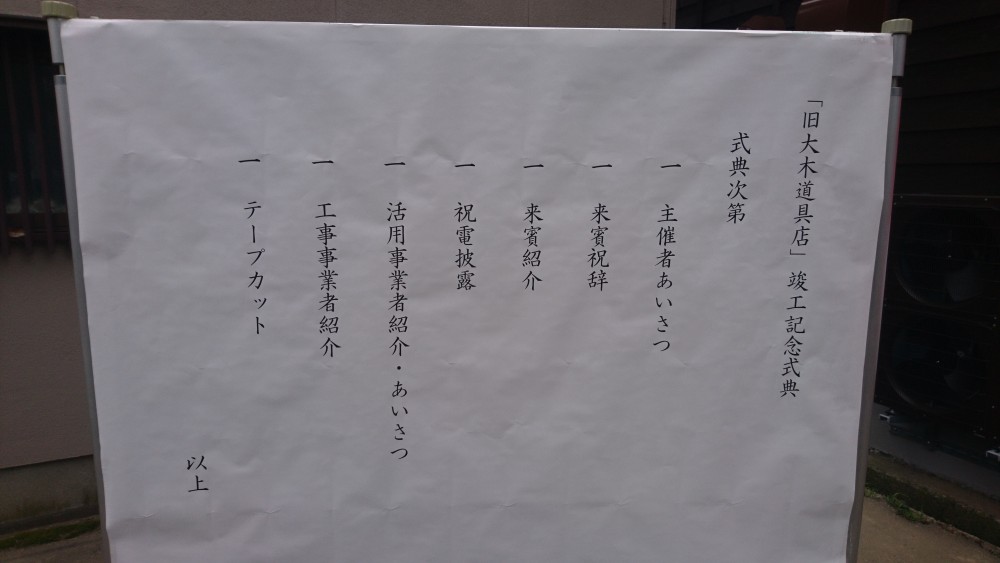 「旧大木道具店」竣工記念式典
式典次第
一 主催者あいさつ
一 来賓祝辞
一 来賓紹介
一 祝電披露
一 活用事業者紹介・あいさつ
一 工事事業者紹介
一 テープカット
以上